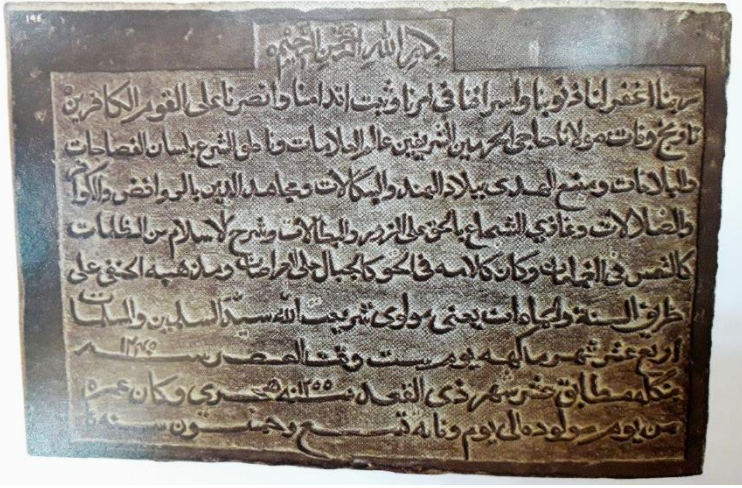 ١٩٤
بسم الله الرحمن الرحيم
ربنا اغفر لنا ذنوبنا واسرافنا فى امرنا وثبت اقدامنا وانصرنا على القوم الكافرين
تاريخ وفات مولانا حاجى الحرمين الشريفين عالم العلامات وناطق الشرع بلسان الفصاحات
والبلاغات ومنبع الهدى ببلاد الهند والبنكالات ومجاهد الدين بالروافض والكوافر
والضلالات وغازي الشجاع بالحق على الزور والبطالات وشرح لاسلام من الظلمات
كالشمس فى النهار وكان كلامه فى الحق كالجبال ومذهبه الحنفى على
طريق السنة والجماعات يعنى مولوى شريعت الله سيد المسلمين والمسلمات
اربع عشر شهر ماكهه يوم بيست وقت العصر سنه ١٢٤٥
بنكله مطابق عشر شهر ذي القعد سنه ١٢٥٥ هجرى وكان عمره
من يوم مولوده الى يوم وفاته تسع وخمسون سنة